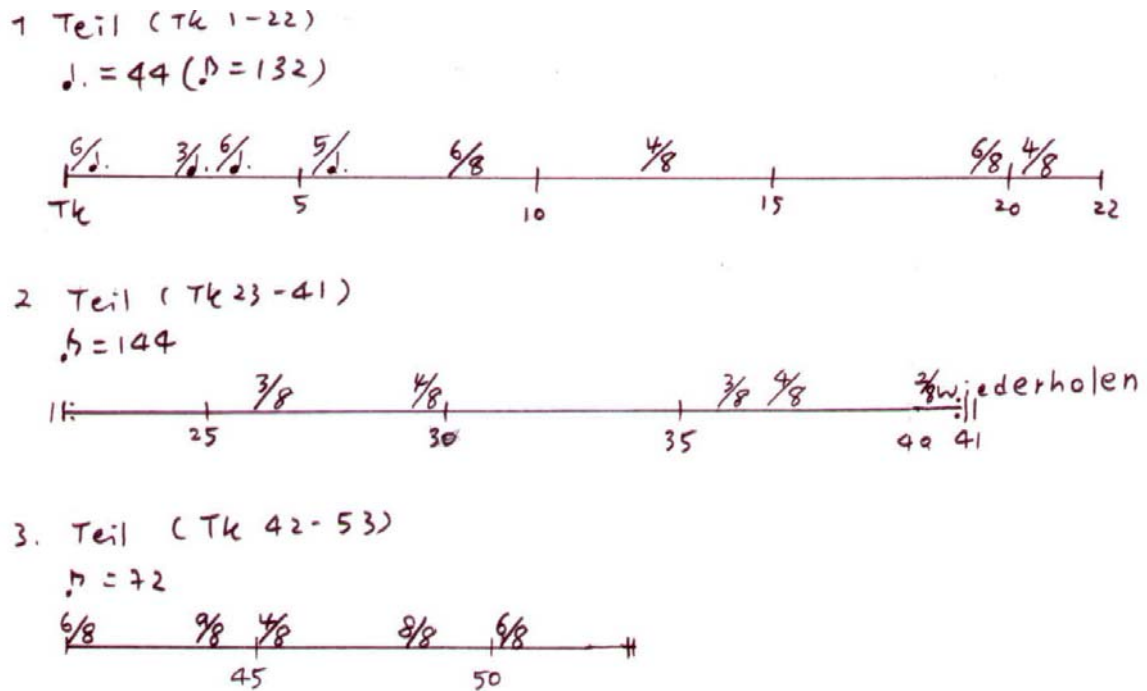 1 Teil (Tk 1-22)
♩. = 44 (♪ = 132)
6/♩. 3/♩. 6/♩. 5/♩. 6/8 4/8 6/8 4/8
Tk 5 10 15 20 22
2 Teil (Tk 23-41)
♪ = 144
3/8 4/8 3/8 4/8 2/8 wiederholen
25 30 35 40 41
3. Teil (Tk 42-53)
♪ = 72
6/8 9/8 4/8 8/8 6/8
45 50